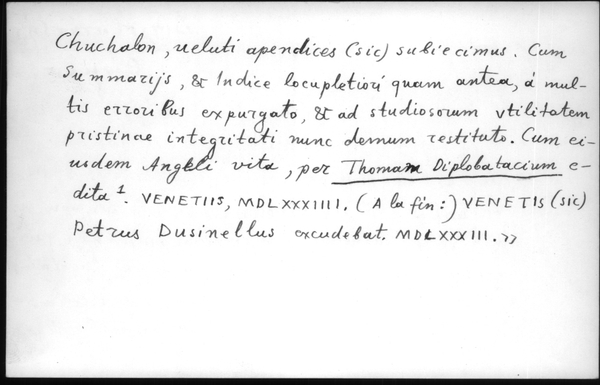 Chuchalon, ueluti apendices (sic) subiecimus. Cum
Summarijs, & Indice locupletiori quam antea, á mul-
tis erroribus expurgato, & ad studiosorum vtilitatem
pristinae integritati nunc demum restituto. Cum ei-
usdem Angeli vita, per Thomam Diplobatacium e-
dita¹. VENETIIS, MDLXXXIIII. (A la fin:) VENETIS (sic)
Petrus Dusinellus excudebat. MDLXXXIII.»